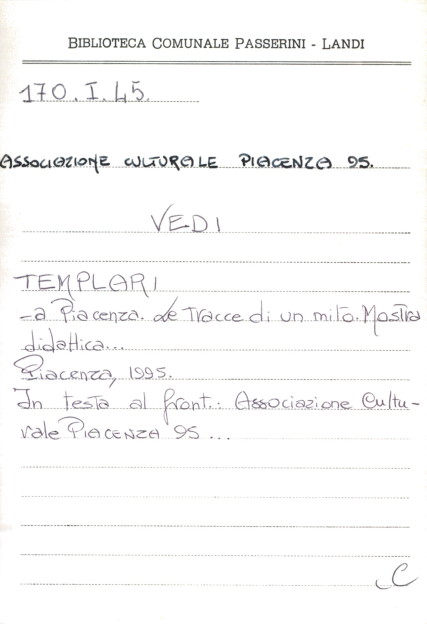 BIBLIOTECA COMUNALE PASSERINI - LANDI
170.I.45.
ASSOCIAZIONE CULTURALE PIACENZA 95.
VEDI
TEMPLARI
-a Piacenza. Le Tracce di un mito. Mostra
didattica...
Piacenza, 1995.
In testa al front.: Associazione Cultu-
rale PIACENZA 95...
C